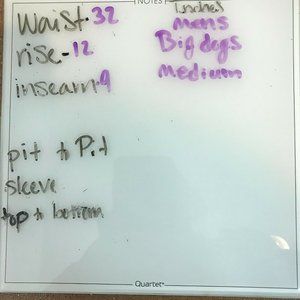 NOTES
Inches
waist-32
mens
rise-12
Big dogs
medium
insearm-9
pit to Pit
sleeve
top to bottom
Quartet